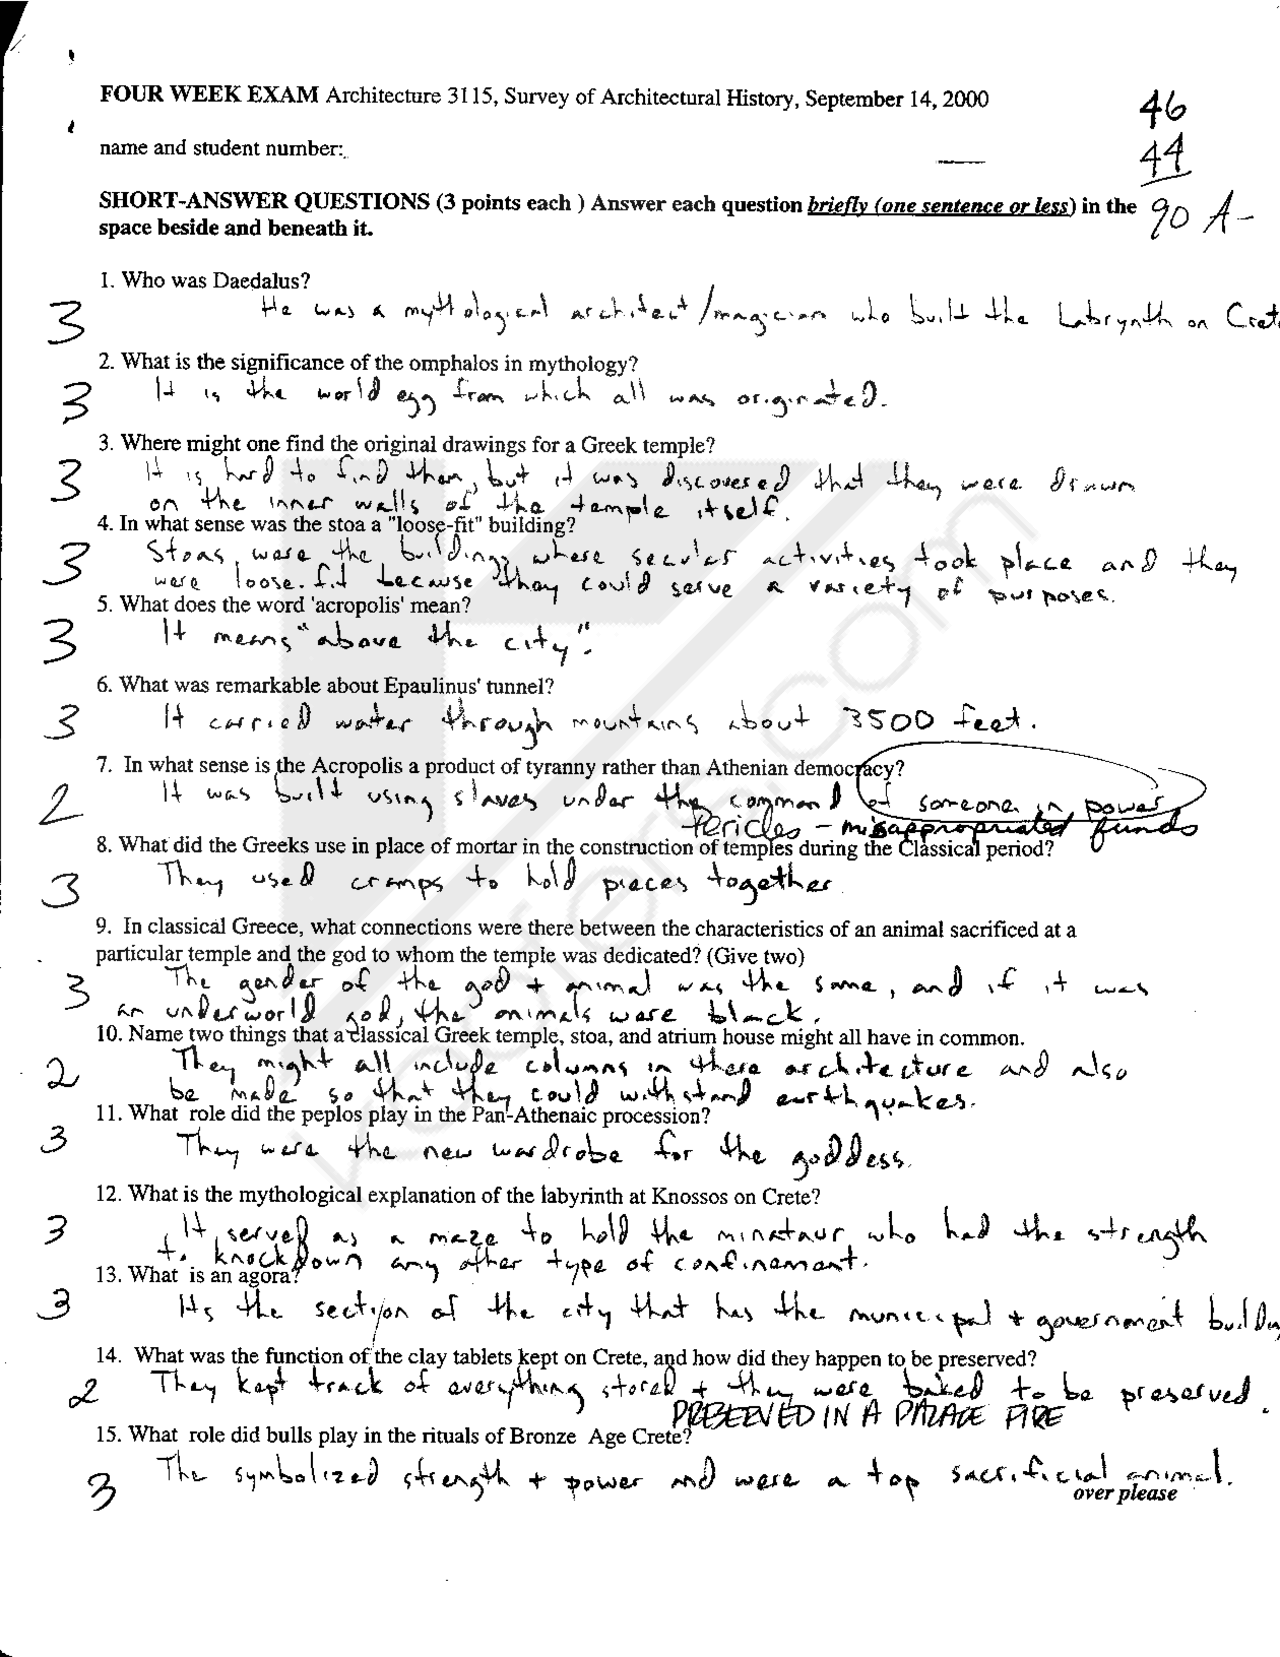 FOUR WEEK EXAM Architecture 3115, Survey of Architectural History, September 14, 2000
46
name and student number:
44
SHORT-ANSWER QUESTIONS (3 points each ) Answer each question briefly (one sentence or less) in the
90 A-
space beside and beneath it.
1. Who was Daedalus?
3 He was a mythological architect/magician who built the Labrynth on Cret
2. What is the significance of the omphalos in mythology?
3 It is the world egg from which all was originated.
3. Where might one find the original drawings for a Greek temple?
3 It is hard to find them, but it was discovered that they were drawn
on the inner walls of the temple itself.
4. In what sense was the stoa a "loose-fit" building?
3 Stoas were the buildings where secular activities took place and they
were loose-fit because they could serve a variety of purposes.
5. What does the word 'acropolis' mean?
3 It means "above the city".
6. What was remarkable about Epaulinus' tunnel?
3 It carried water through mountains about 3500 feet.
7. In what sense is the Acropolis a product of tyranny rather than Athenian democracy?
2 It was built using slaves under the command of someone in power
Pericles - misappropriated funds
8. What did the Greeks use in place of mortar in the construction of temples during the Classical period?
3 They used cramps to hold pieces together
9. In classical Greece, what connections were there between the characteristics of an animal sacrificed at a
particular temple and the god to whom the temple was dedicated? (Give two)
3 The gender of the god + animal was the same, and if it was
an underworld god, the animals were black.
10. Name two things that a classical Greek temple, stoa, and atrium house might all have in common.
2 They might all include columns in there architecture and also
be made so that they could withstand earthquakes.
11. What role did the peplos play in the Pan-Athenaic procession?
3 They were the new wardrobe for the goddess.
12. What is the mythological explanation of the labyrinth at Knossos on Crete?
3 It served as a maze to hold the minataur who had the strength
to knock down any other type of confinement.
13. What is an agora?
3 Its the section of the city that has the municipal + government buildin
14. What was the function of the clay tablets kept on Crete, and how did they happen to be preserved?
2 They kept track of everything stored + they were baked to be preserved.
PRESERVED IN A PALACE FIRE
15. What role did bulls play in the rituals of Bronze Age Crete?
3 The symbolized strength + power and were a top sacrificial animal.
over please
koofers.com